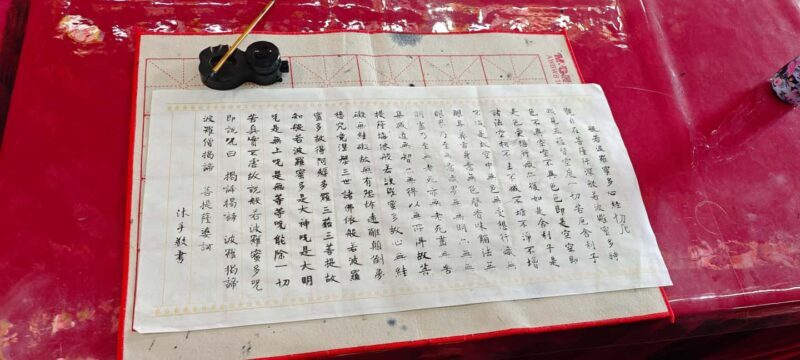 般若波羅蜜多心經
觀自在菩薩行深般若波羅蜜多時
照見五蘊皆空度一切苦厄舍利子
色不異空空不異色色即是空空即
是色受想行識亦復如是舍利子是
諸法空相不生不滅不垢不淨不增
不減是故空中無色無受想行識無
眼耳鼻舌身意無色聲香味觸法無
眼界乃至無意識界無無明亦無無
明盡乃至無老死亦無老死盡無苦
集滅道無智亦無得以無所得故菩
提薩埵依般若波羅蜜多故心無罣
礙無罣礙故無有恐怖遠離顛倒夢
想究竟涅槃三世諸佛依般若波羅
蜜多故得阿耨多羅三藐三菩提故
知般若波羅蜜多是大神咒是大明
咒是無上咒是無等等咒能除一切
苦真實不虛故說般若波羅蜜多咒
即說咒曰 揭諦揭諦 波羅揭諦
波羅僧揭諦 菩提薩婆訶
沐手敬書